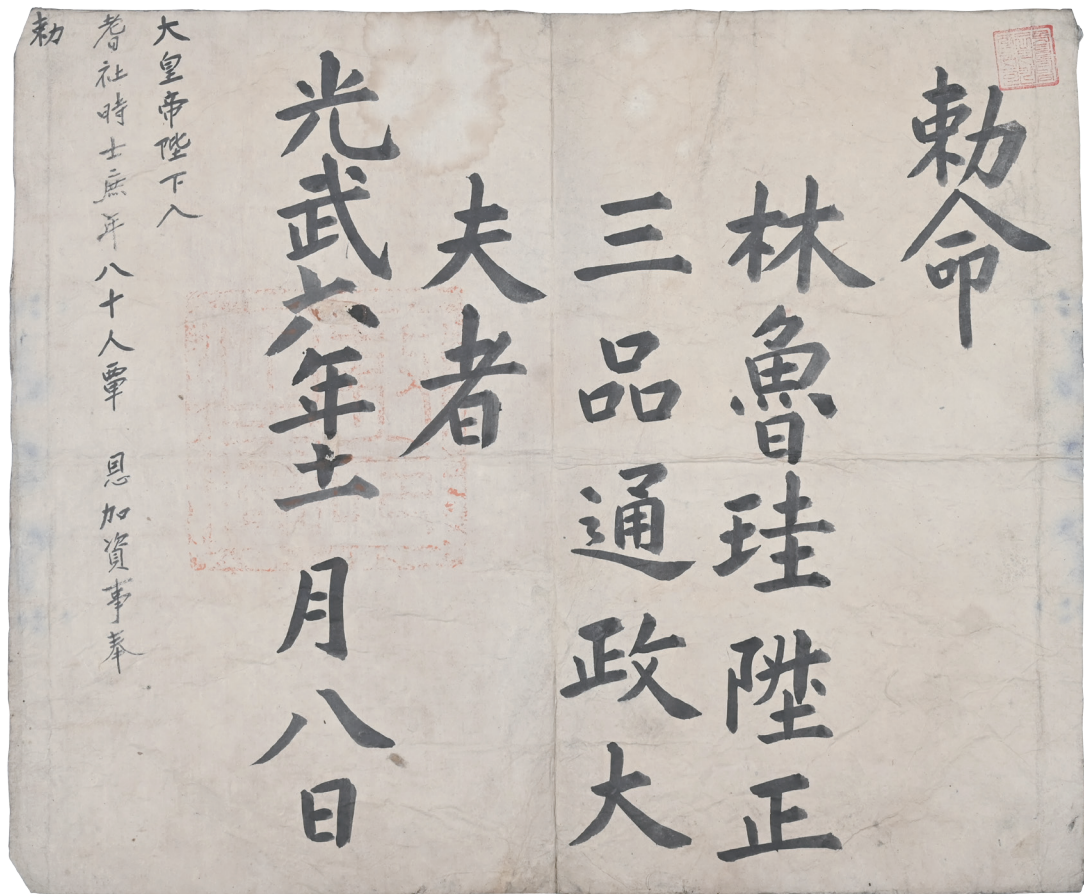 勅命
林魯珪陞正
三品通政大
夫者
光武六年十一月八日
大皇帝陛下入
耆社時士庶年八十人覃 恩加資事奉
勅